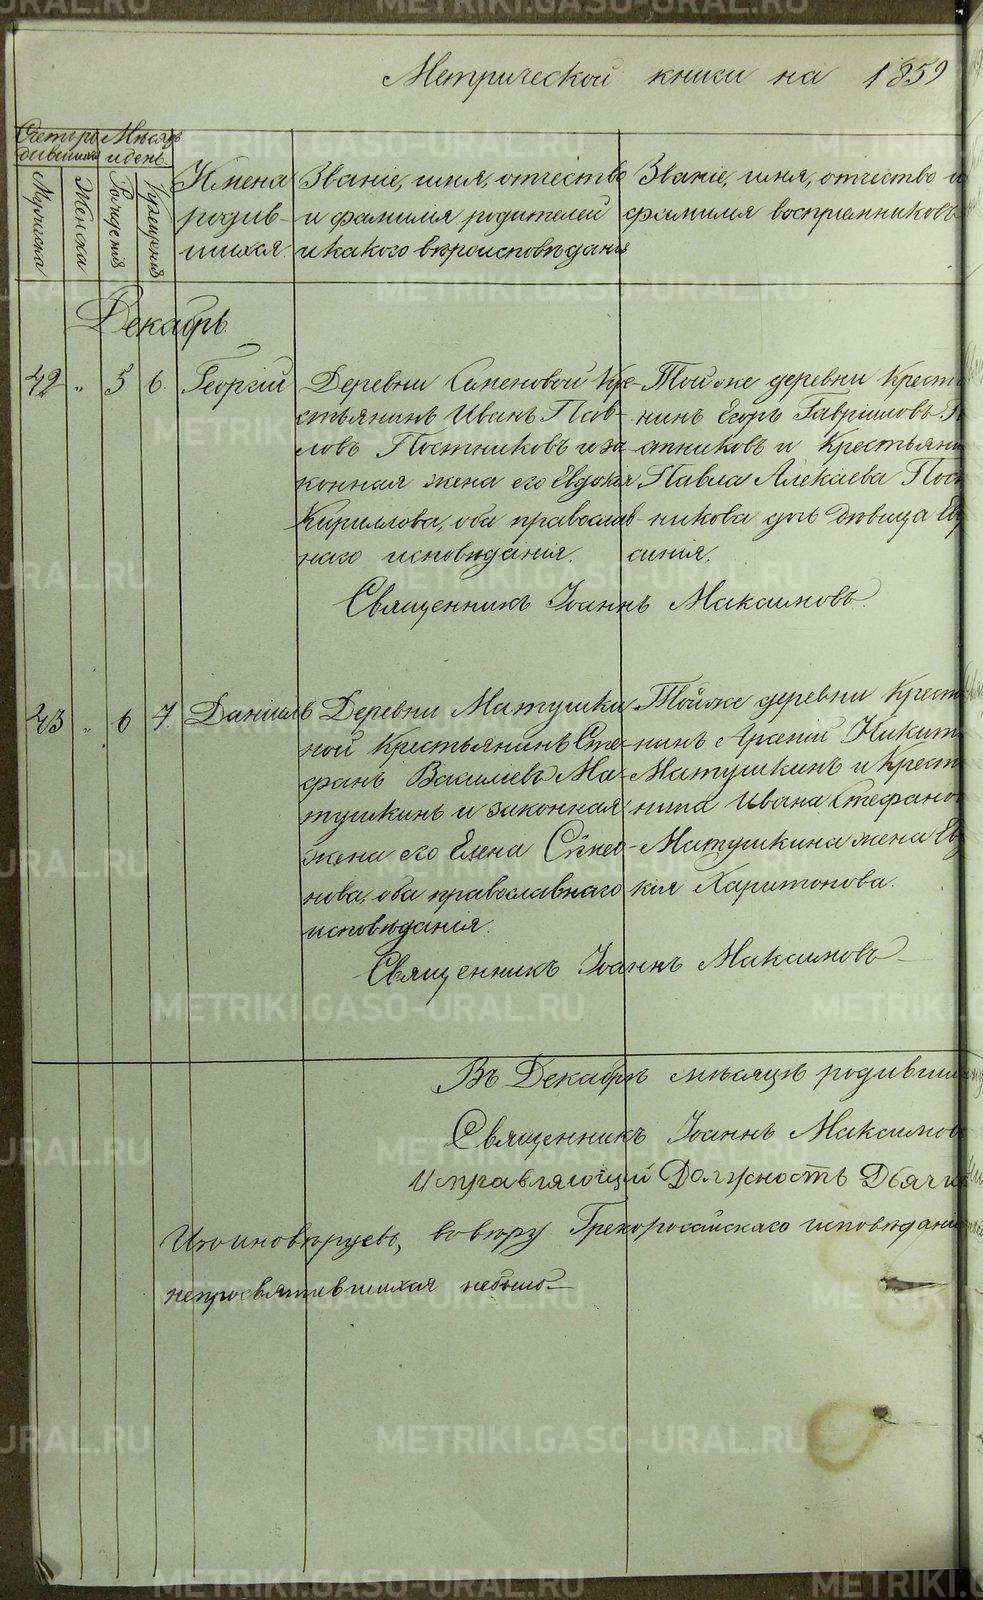 Метрической книги на 1859
Счетъ ро- Мѣсяцъ
дившихся и день
Мужеска
Женска
Рожденія
Крещенія
Имена
родив-
шихся.
Званіе, имя, отчество
и фамилія родителей
и какого вѣроисповѣданія
Званіе, имя, отчество и
фамилія воспріемниковъ
Декабрь.
42 " 5 6. Георгій
Деревни Сипеновой Кре-
стьянинъ Иванъ Пав-
ловъ Постниковъ и за-
конная жена его Евдокія
Кириллова, оба православ-
наго исповѣданія.
Той же деревни Крест
нинъ Егоръ Гавріиловъ П
стниковъ и Крестьяни
Павла Алексѣева Пост
никова дочь дѣвица Ев
синія.
Священникъ Іоаннъ Максимовъ.
43 " 6 7. Даніилъ
Деревни Матушки-
ной Крестьянинъ Сте-
фанъ Василіевъ Ма-
тушкинъ и законная
жена его Елена Симео-
нова, оба православнаго
исповѣданія.
Той же деревни Крест
нинъ Арсеній Никит
Матушкинъ и Крест
нина Ивана Стефанов
Матушкина жена Евд
кія Харитонова.
Священникъ Іоаннъ Максимовъ
Въ Декабрѣ мѣсяцѣ родивши
Священникъ Іоаннъ Максимов
Исправляющій Должность Дьячк
Изъ иновѣрцевъ, въ вѣру Грекороссійскаго исповѣдані
непросвятившихся небыло
METRIKI.GASO-URAL.RU